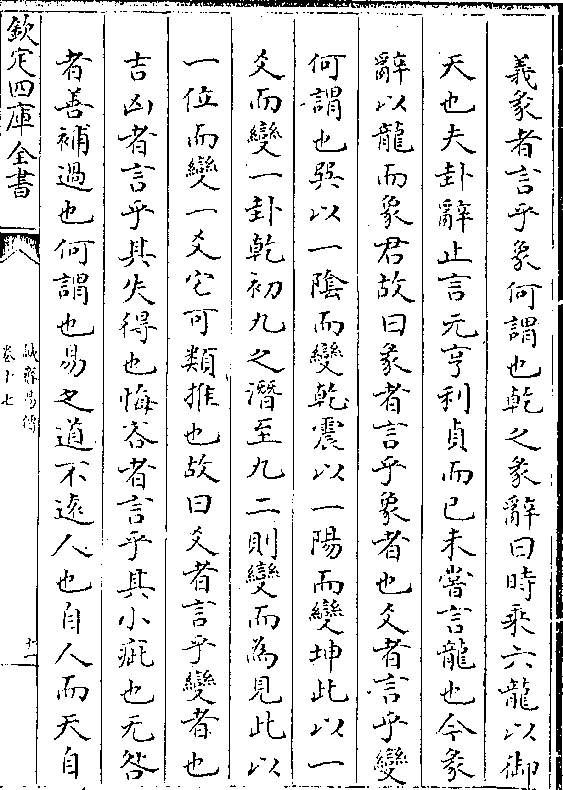 義彖者言乎象何謂也乾之彖辭曰時乗六龍以御
天也夫卦辭止言元亨利貞而已未嘗言龍也今彖
辭以龍而象君故曰彖者言乎象者也爻者言乎變
何謂也巽以一陰而變乾震以一陽而變坤此以一
爻而變一卦乾初九之潛至九二則變而為見此以
一位而變一爻它可類推也故曰爻者言乎變者也
吉凶者言乎其失得也悔吝者言乎其小疵也无咎
者善補過也何謂也易之道不逺人也自人而天自
欽定四庫全書
誠齋易傳
卷十七
十一